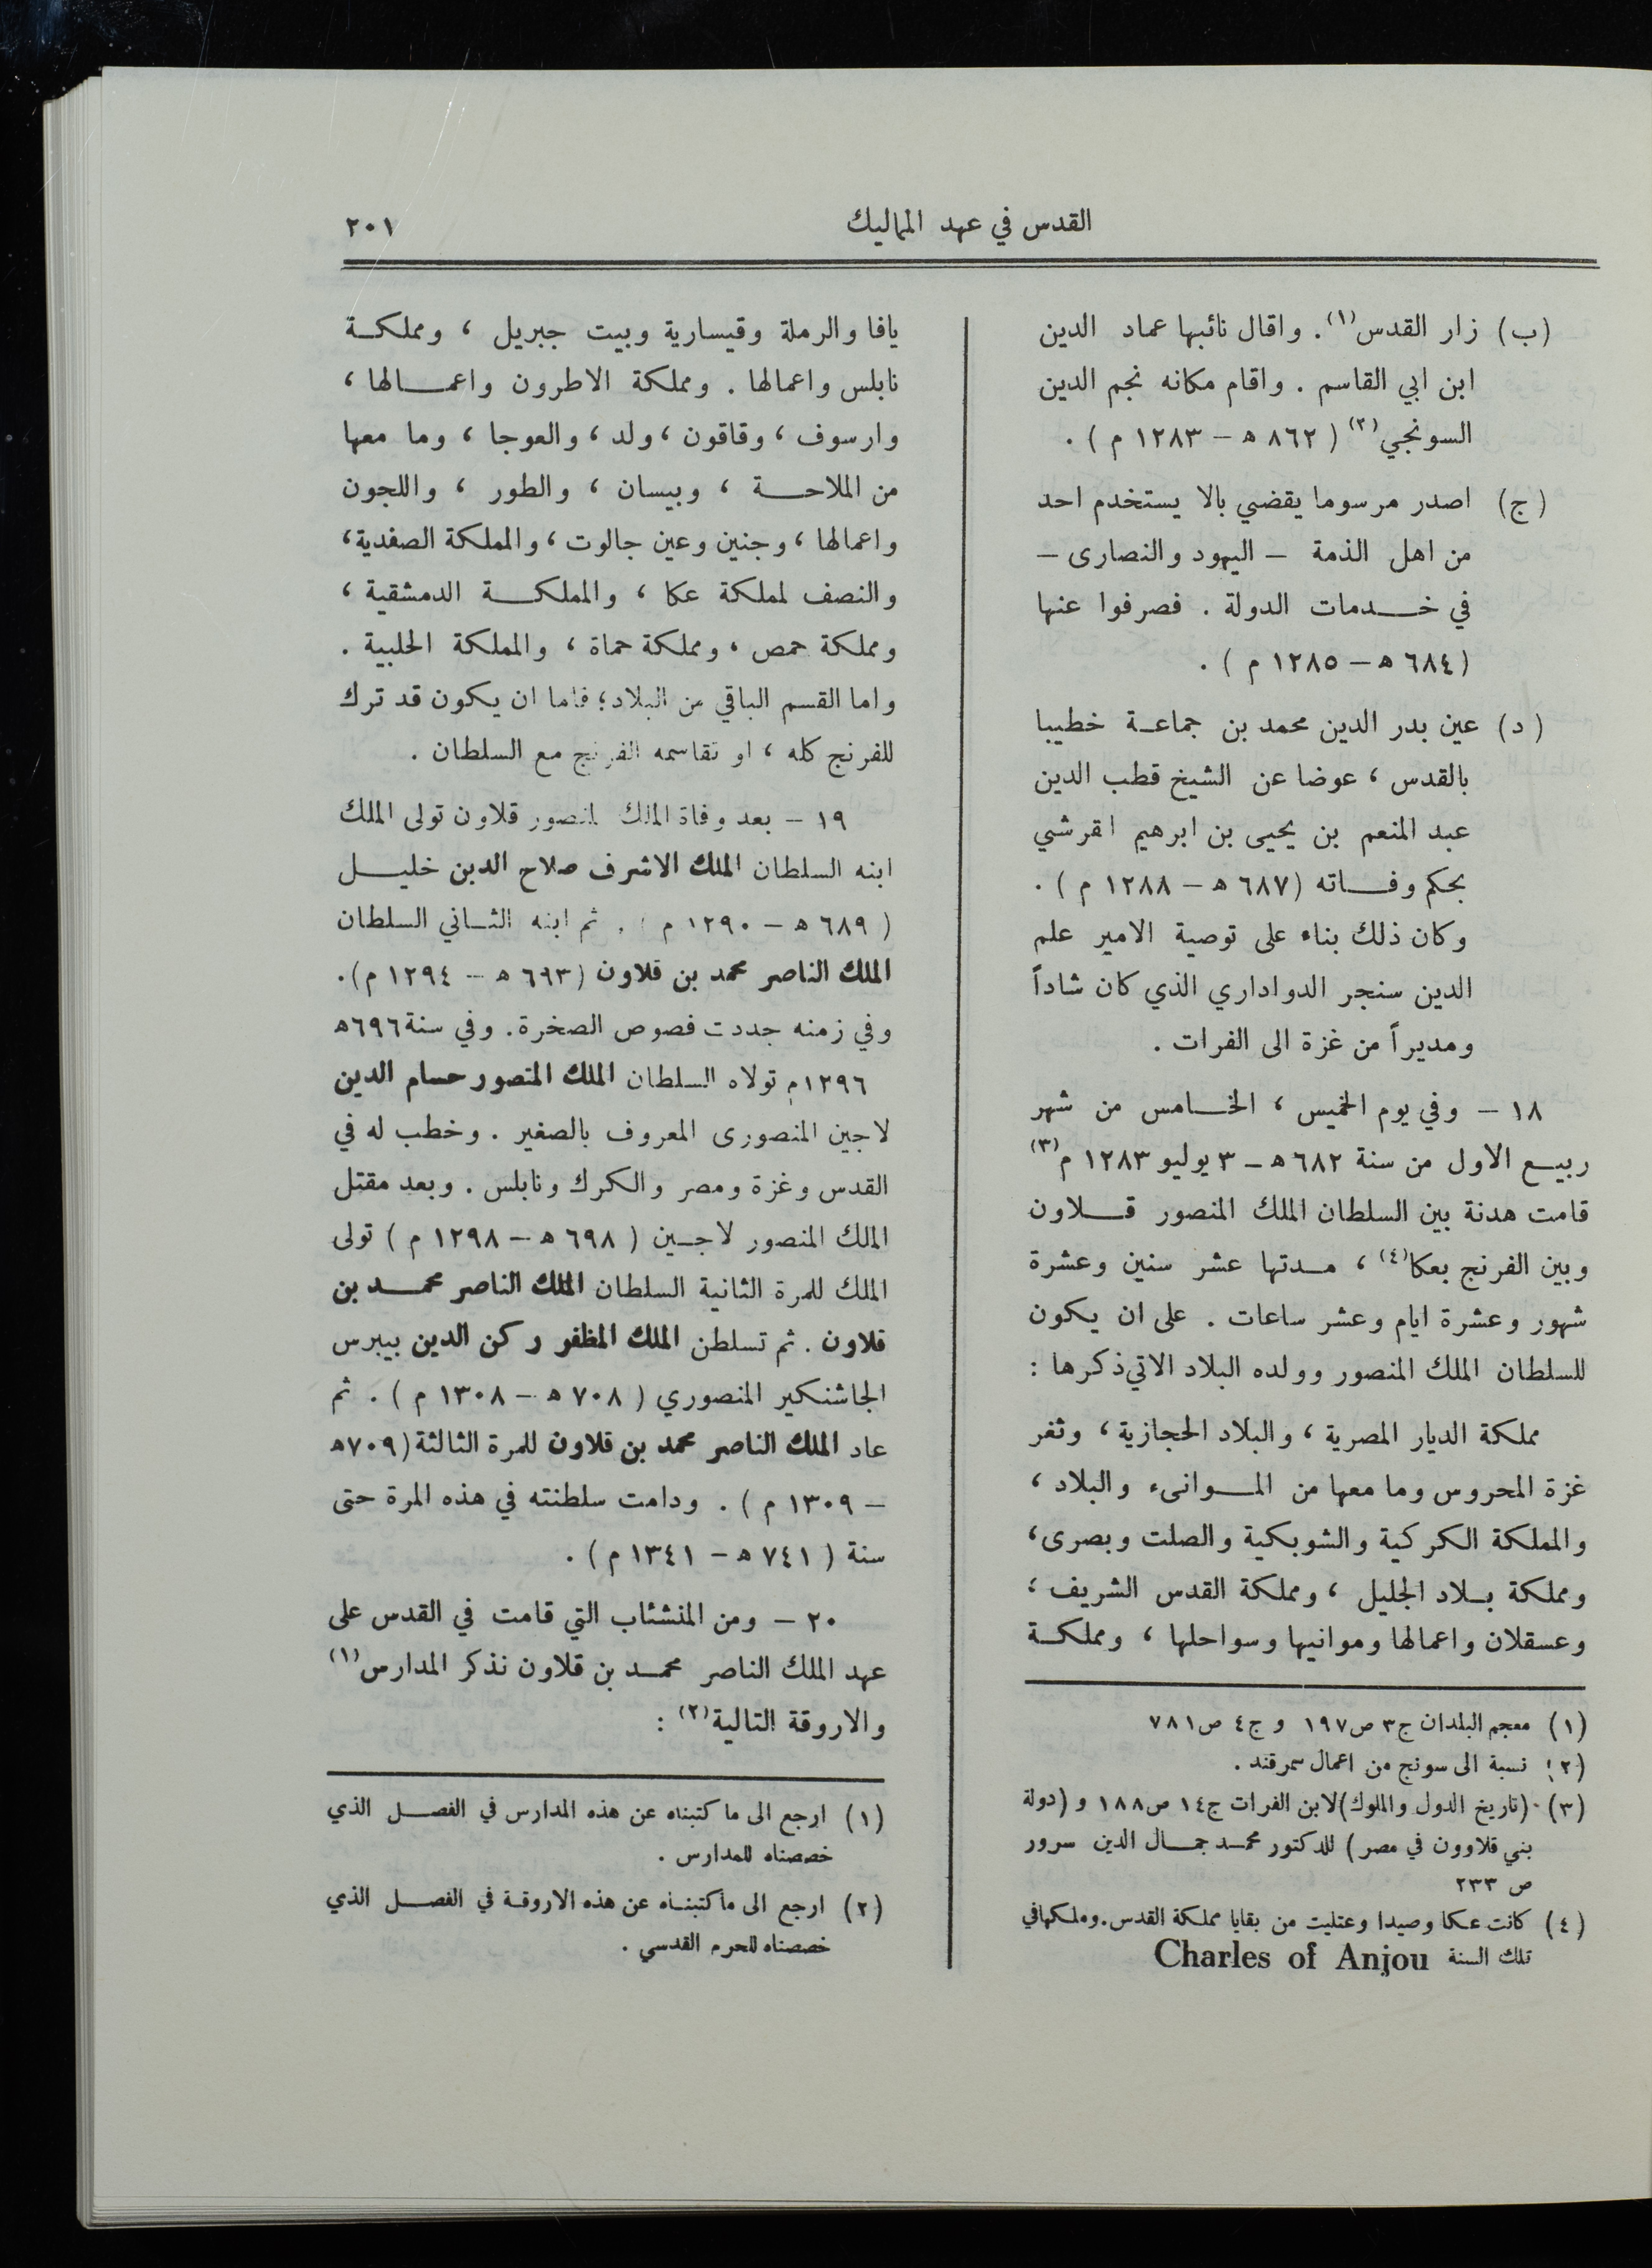 القدس في عهد المماليك
٢٠١
(ب) زار القدس(١). واقال نائبها عماد الدين
ابن ابي القاسم . واقام مكانه نجم الدين
السونجي(٢) ( ٨٦٢ ه – ١٢٨٣ م ) .
(ج) اصدر مرسوما يقضي بالا يستخدم احد
من اهل الذمة – اليهود والنصارى –
في خدمات الدولة . فصرفوا عنها
(٦٨٤ ه – ١٢٨٥ م ) .
(د) عين بدر الدين محمد بن جماعة خطيبا
بالقدس ، عوضا عن الشيخ قطب الدين
عبد المنعم بن يحيى بن ابرهيم القرشي
بحكم وفاته (٦٨٧ ه – ١٢٨٨ م ) .
وكان ذلك بناء على توصية الامير علم
الدين سنجر الدواداري الذي كان شاداً
ومديراً من غزة الى الفرات .
١٨ – وفي يوم الخميس ، الخامس من شهر
ربيع الاول من سنة ٦٨٢ ه – ٣ يوليو ١٢٨٣ م(٣)
قامت هدنة بين السلطان الملك المنصور قلاون
وبين الفرنج بعكا(٤) ، مدتها عشر سنين وعشرة
شهور وعشرة ايام وعشر ساعات . على ان يكون
للسلطان الملك المنصور وولده البلاد الاتي ذكرها :
مملكة الديار المصرية ، والبلاد الحجازية ، وثغر
غزة المحروس وما معها من الموانىء والبلاد ،
والمملكة الكركية والشوبكية والصلت وبصرى،
ومملكة بلاد الجليل ، ومملكة القدس الشريف ؛
وعسقلان واعمالها وموانيها وسواحلها ، ومملكة
(١) معجم البلدان ج٣ ص١٩٧ و ج٤ ص٧٨١
(٢) نسبة الى سونج من اعمال سمرقند .
(٣) (تاريخ الدول والملوك) لابن الفرات ج١٤ ص١٨٨ و (دولة
بني قلاوون في مصر) للدكتور محمد جمال الدين سرور
ص ٢٣٣
(٤) كانت عكا وصيدا وعتليت من بقايا مملكة القدس.وملكها في
تلك السنة Charles of Anjou
يافا والرملة وقيسارية وبيت جبريل ، ومملكة
نابلس واعمالها . ومملكة الاطرون واعمالها ،
وارسوف ، وقاقون ، ولد ، والعوجا ، وما معها
من الملاحة ، وبيسان ، والطور ، واللجون
واعمالها ، وجنين وعين جالوت ، والمملكة الصفدية،
والنصف لمملكة عكا ، والمملكة الدمشقية ،
ومملكة حمص ، ومملكة حماة ، والمملكة الحلبية .
واما القسم الباقي من البلاد؛ فاما ان يكون قد ترك
للفرنج كله ، او تقاسمه الفرنج مع السلطان .
١٩ – بعد وفاة الملك المنصور قلاون تولى الملك
ابنه السلطان الملك الاشرف صلاح الدين خليل
( ٦٨٩ ه – ١٢٩٠ م ) . ثم ابنه الثاني السلطان
الملك الناصر محمد بن قلاون (٦٩٣ ه – ١٢٩٤ م).
وفي زمنه جددت فصوص الصخرة. وفي سنة ٦٩٦ه
١٢٩٦م تولاه السلطان الملك المنصور حسام الدين
لاجين المنصورى المعروف بالصغير . وخطب له في
القدس وغزة ومصر والكرك ونابلس . وبعد مقتل
الملك المنصور لاجين ( ٦٩٨ ه – ١٢٩٨ م ) تولى
الملك للمرة الثانية السلطان الملك الناصر محمد بن
قلاون . ثم تسلطن الملك المظفر ركن الدين بيبرس
الجاشنكير المنصوري ( ٧٠٨ ه – ١٣٠٨ م ) . ثم
عاد الملك الناصر محمد بن قلاون للمرة الثالثة (٧٠٩ه
– ١٣٠٩ م ) . ودامت سلطنته في هذه المرة حتى
سنة ( ٧٤١ ه – ١٣٤١ م ) .
٢٠ – ومن المنشئاب التي قامت في القدس على
عهد الملك الناصر محمد بن قلاون نذكر المدارس(١)
والاروقة التالية(٢) :
(١) ارجع الى ما كتبناه عن هذه المدارس في الفصل الذي
خصصناه للمدارس .
(٢) ارجع الى ما كتبناه عن هذه الاروقة في الفصل الذي
خصصناه للحرم القدسي .